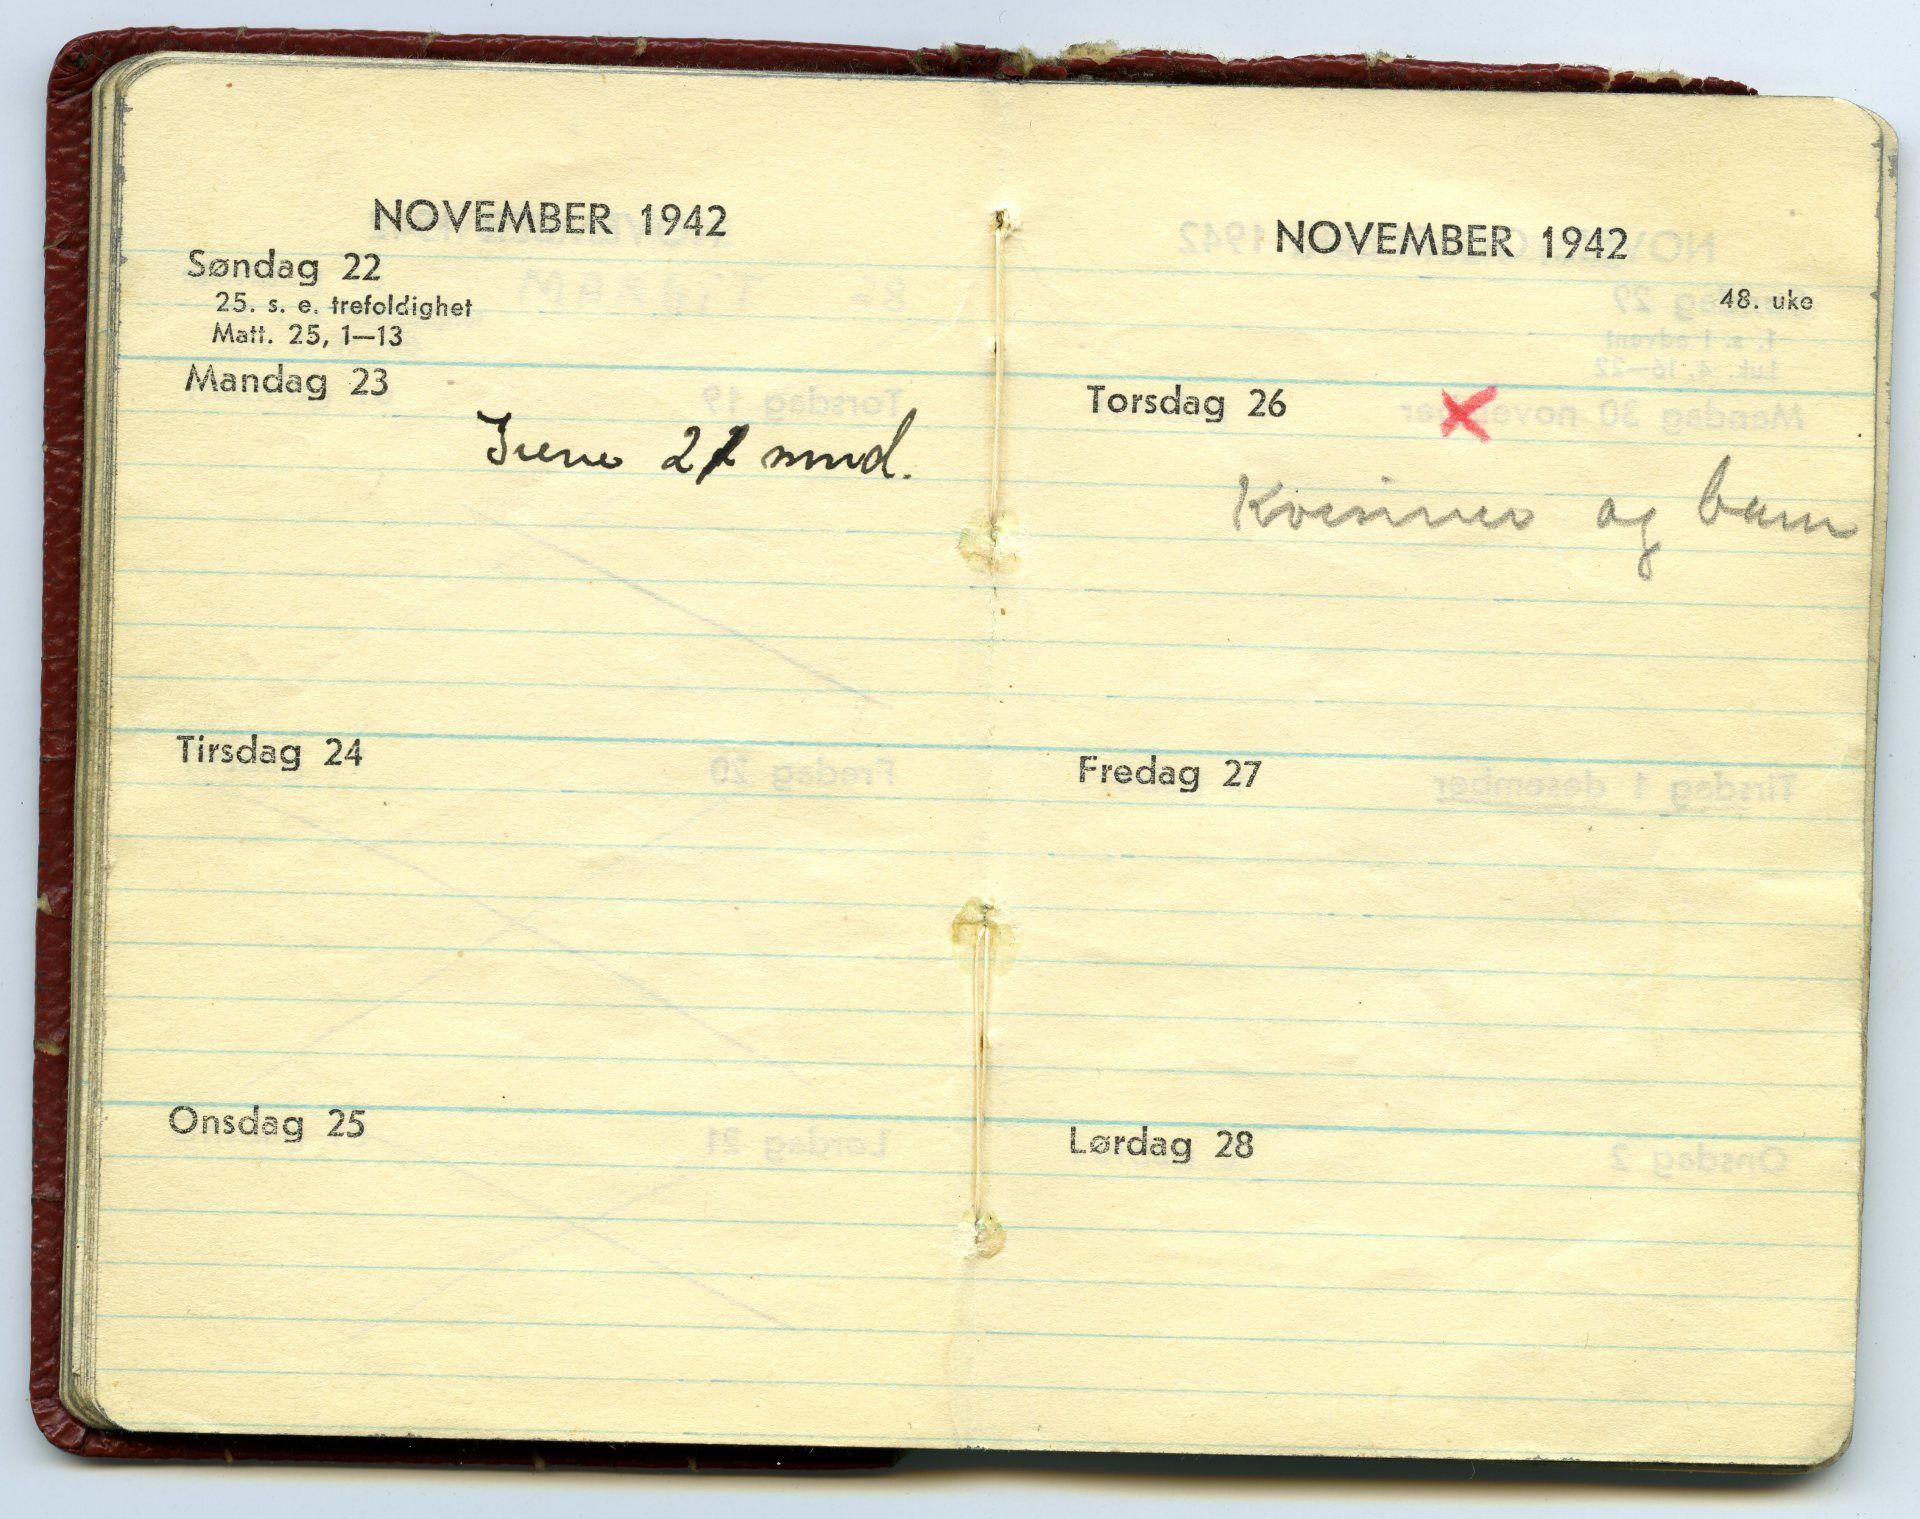 NOVEMBER 1942
Søndag 22
25. s. e. trefoldighet
Matt. 25, 1—13
Mandag 23
Irene 21 mnd.
Tirsdag 24
Onsdag 25
NOVEMBER 1942
48. uke
Torsdag 26
Kvinner og barn
Fredag 27
Lørdag 28